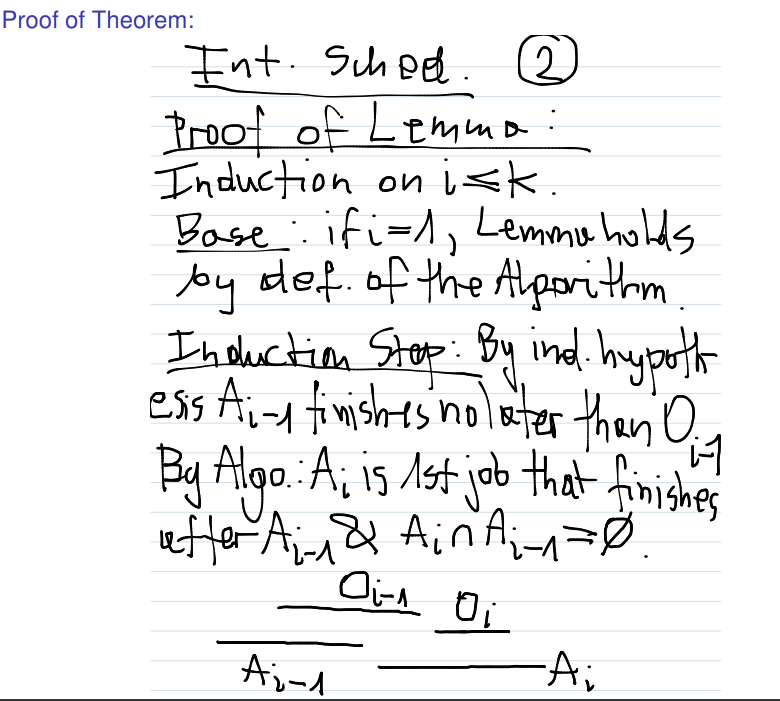 Proof of Theorem:
Int. Sched. ②
Proof of Lemma:
Induction on i≤k.
Base: if i=1, Lemma holds
by def. of the Algorithm.
Induction Step: By ind. hypoth
esis A_{i-1} finishes no later than O_{i-1}
By Algo.: A_i is 1st job that finishes
after A_{i-1} & A_i ∩ A_{i-1} = ∅.
O_{i-1} O_i
A_{i-1} A_i